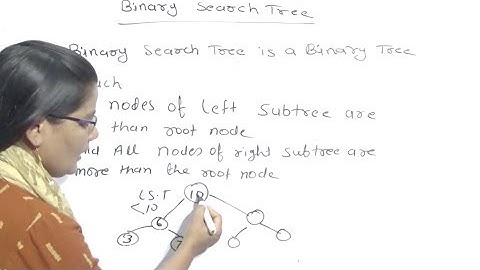 Binary Search Tree
Binary Search Tree is a Binary Tree
nodes of left subtree are
than root node
All nodes of right subtree are
more than the root node
L.S.T 10
<10
6
3